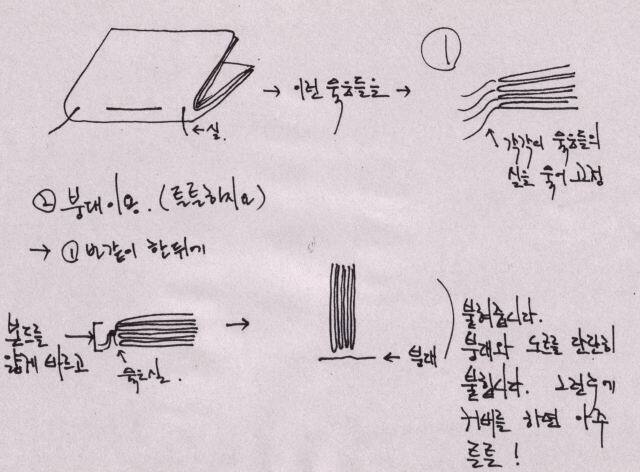 → 이런 묶음들을 →
①
←실.
각각의 묶음들의
실을 묶어 고정
② 붕대이용. (튼튼하지요)
→ ① 번같이 한뒤에
본드를
얇게 바르고
묶은실.
→
← 붕대
붙혀줍니다.
붕대와 노트를 단단히
붙힙니다. 그런후에
커버를 하면 아주
튼튼!